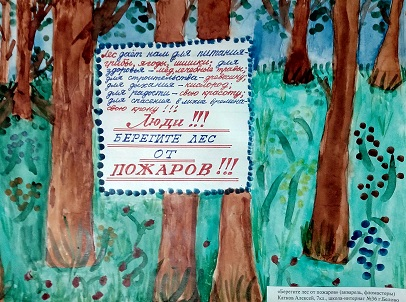 Лес даёт нам для питания-
грибы, ягоды, шишки; для
здоровья - мёд, лекарственные травы;
для строительства - древесину;
для дыхания - кислород;
для радости - свою красоту;
для спасения в лихие времена-
свою крону!!!
Люди!!!
БЕРЕГИТЕ ЛЕС
ОТ
ПОЖАРОВ!!!
«Берегите лес от пожаров» (акварель, фломастеры)
Катков Алексей, 7кл., школа-интернат №36 г.Белово